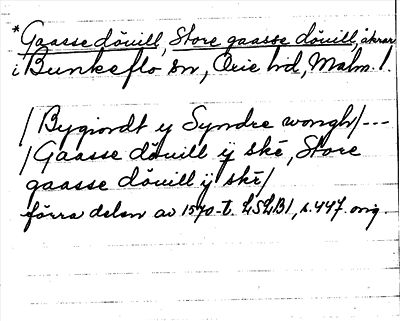 *Gaasse döuill, Store gaasse döuill, åkrar
i Bunkeflo sn, Oxie hd, Malm. l.
/Bygiordt ij Syndre wongh/---
/Gaasse döuill ij skē, Store
gaasse döuill ij skē/
förra delen av 1570-t. LSLB1, s. 447. orig.